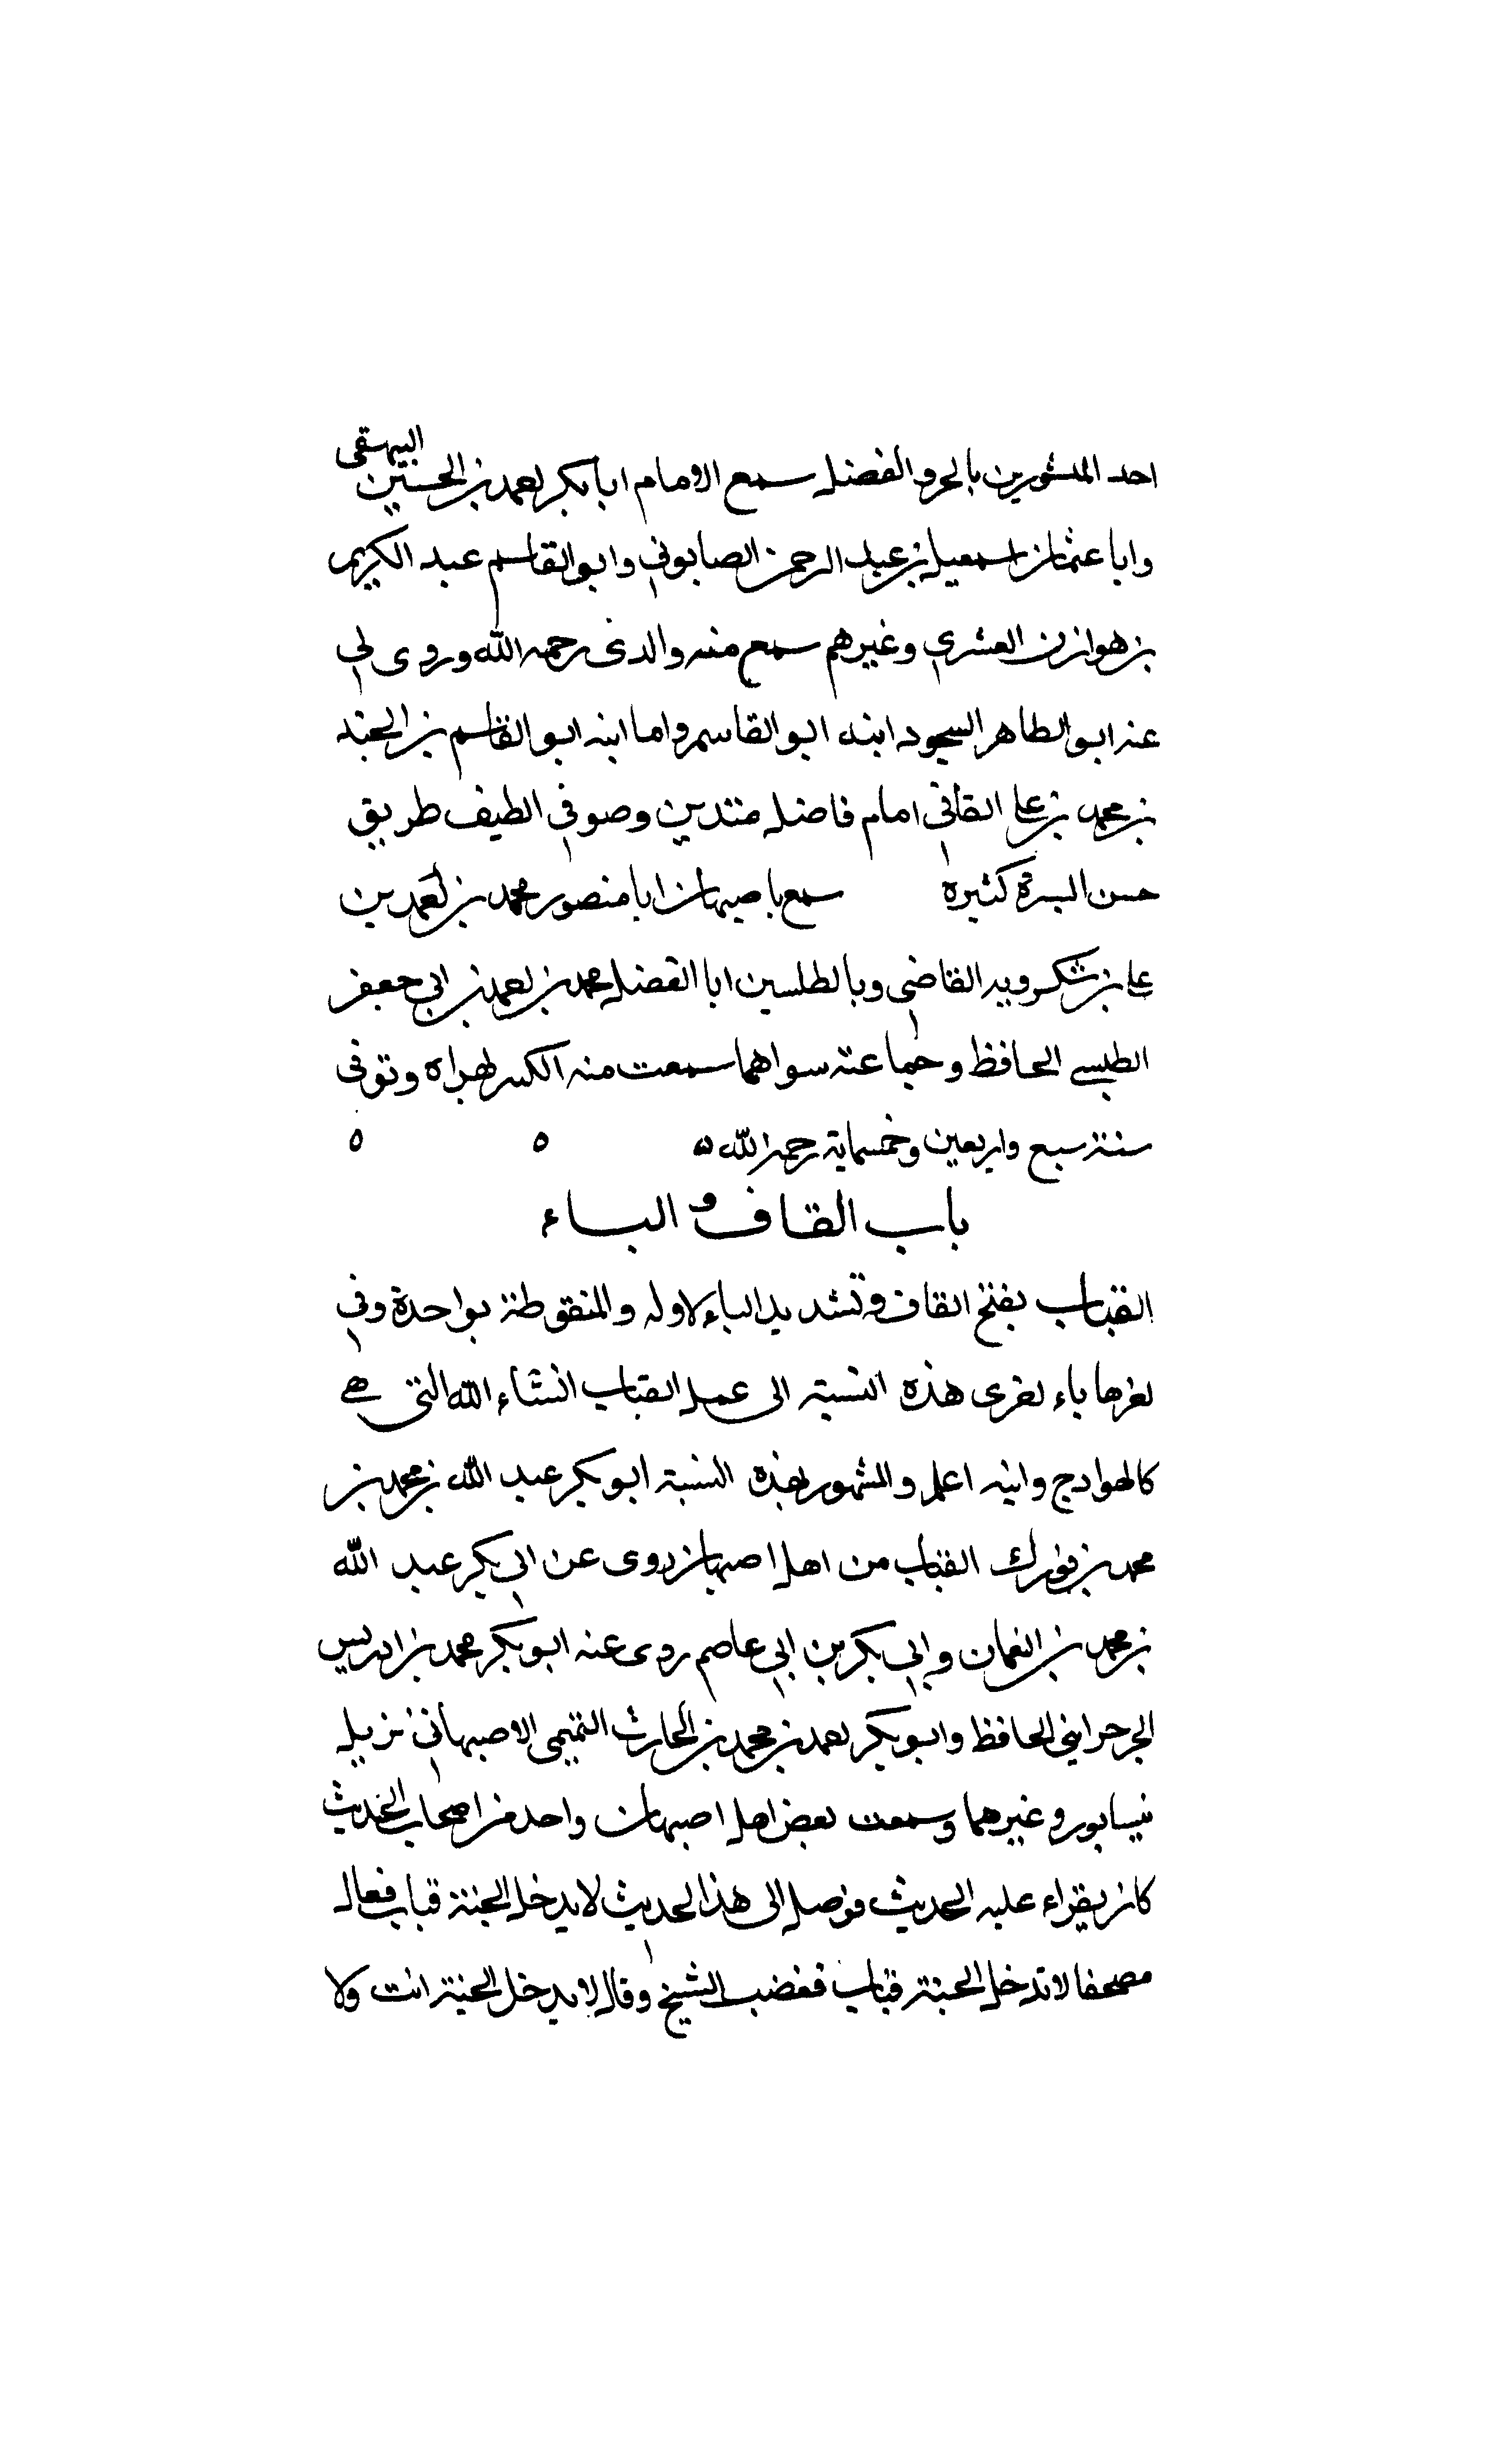 احد المشهورين بالحرو الفضل سمع الامام ابا بكر احمد بن الحسين البيهقى
وابا عثمان اسمعيل بن عبد الرحمن الصابوني وابو القاسم عبد الكريم
بن هوازن القشرى وغيرهم سمع منه والدى رحمه الله وروى لى
عنه ابو الطاهر السجود ابنه ابو القاسم واما ابنه ابو القاسم بن الجنيد
بن محمد بن على القانى امام فاضل متدين وصوفى الطيف طريق
حسن السيرة كثيره سمع باصبهان ابا منصور محمد بن احمد بن
على بن شكرويه القاضى وبالطلسين ابا الفضل محمد بن احمد بن ابى جعفر
الطبسى الحافظ وجماعته سواهما سمعت منه الكبير لهراه وتوفى
سنة سبع واربعين وخمسماية رحمه الله ه ه ه
باب القاف و الباء
القباب بفتح القاف وتشديد الباء الاوله والمنقوطة بواحدة وفى
اخرها باء اخرى هذه النسبة الى عمل القباب انشاء الله التى هى
كالهوادج وانيه اعلم والمشهور بهذه النسبة ابو بكر عبد الله بن محمد بن
محمد بن فورك القباب من اهل اصبهان روى عن ابى بكر عبد الله
بن محمد بن النعمان وابى بكر بن ابى عاصم روى عنه ابو بكر محمد بن ادريس
الجرجرايى الحافظ وابو بكر احمد بن محمد بن الحارث التميمى الاصبهانى نزيل
نيسابور وغيرهما وسمعت بعض اهل اصبهان واحد من اصحاب الحديث
كان يقراء عليه الحديث فوصل الى هذا الحديث لا يدخل الجنة قباب فعال
مصحفا لا تدخل الجنة قباب فغضب الشيخ وقال لا يدخل الجنة انت ولا